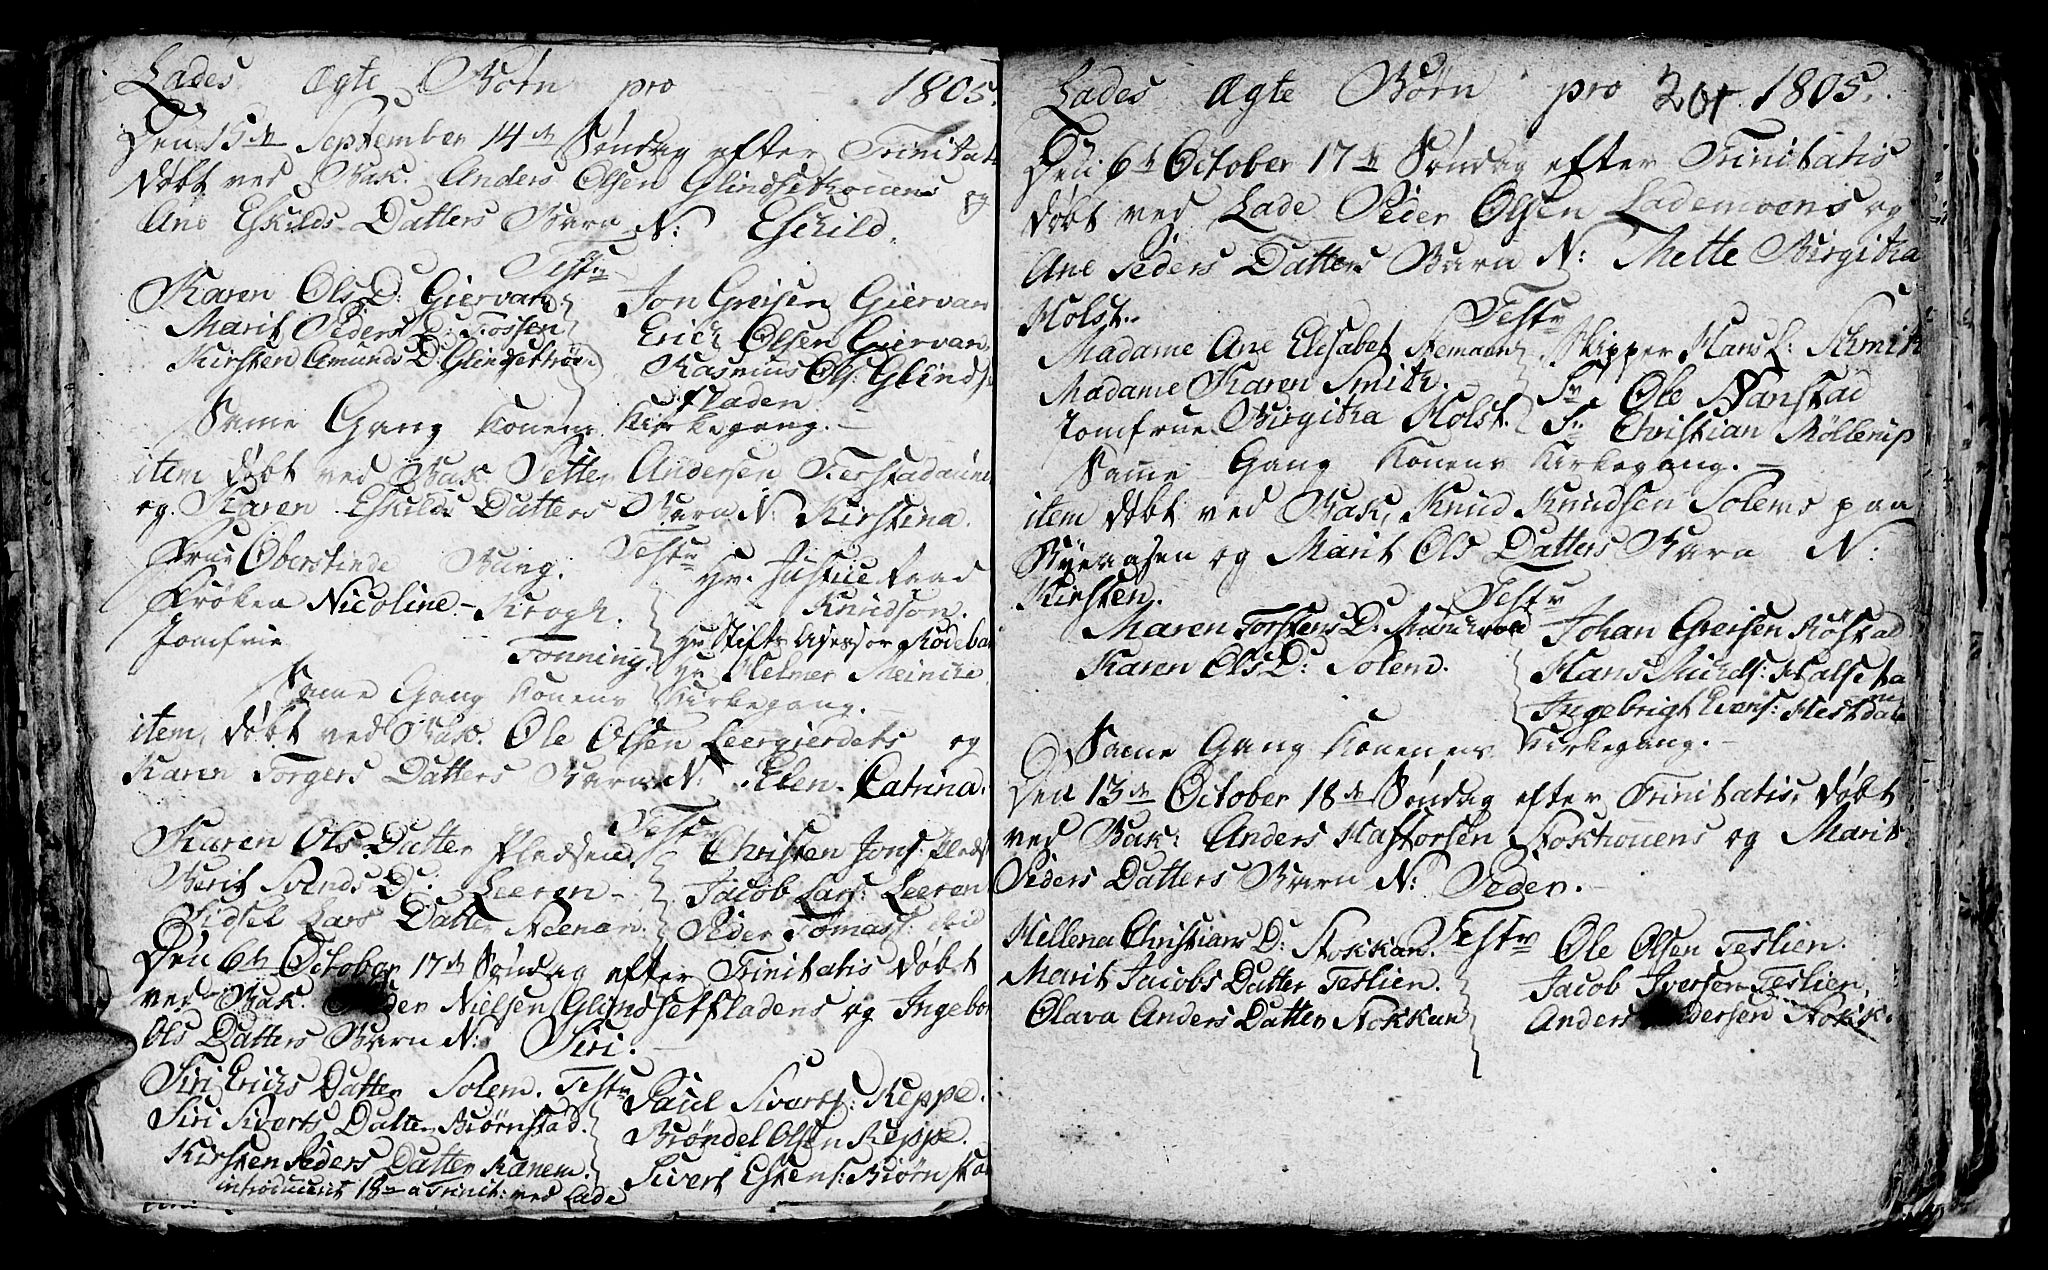 Lades Ægte Børn pro 1805.
Den 15de September 14de Søndag efter Trinitat
døbt ved Bak. Anders Olsen Glindsethouens og
Ane Eskilds Datters Barn N: Eschild.
Test
Karen Ols D: Giervan Jon Greisen Giervan
Marit Peders D: Fossen Erich Olsen Giervan
Kirsten Amunds D: Glindsethrø Rasmus Ols: Glinds
fladen
Same Gang Konens Kirkegang.
item døbt ved Bak. Petter Andersen Ferstadaunes
og Karen Eskilds Datters Barn N: Kirstina.
Test
Frue Oberstinde Bang. Hr. Justice Raad
Frøken Nicoline Krogh. Knudson.
Jomfrue Tønning. Hr Stifts Assessor Rodeba
Hr Helmer Meincke
Same Gang Konens Kirkegang.
item, døbt ved Bak. Ole Olsen Leergierdets og
Karen Torgers Datters Barn N: Elen Catrina.
Test
Karen Ols Datter Fledsen. Christen Jons: Fleds
Berit Svends D: Leeren Jacob Lars: Leeren
Sidsel Lars Datter Neenan. Peder Tomass: ibid
Den 6te October 17de Søndag efter Trinitatis døbt
ved Bak. Peder Nielsen Glindsetfladens og Ingebor
Ols Datters Barn N: Siri.
Siri Erichs Datter Solem. Test Paul Siverts: Reppe.
Siri Siverts Datter Biørnstad. Brøndel Olsen Reppe.
Kirsten Peders Datter Ranem. Sivert Estens: Biørnstad
introducerit 18de a Trinit: ved Lade
Lades Ægte Børn pro 201 1805.
Den 6te October 17de Søndag efter Trinitatis
døbt ved Lade Peder Olsen Lademoens og
Ane Peders Datters Barn N: Mette Birgitha
Holst.
Test
Madame Ane Elisabet Hemann Skipper Hans L: Schmit
Madame Karen Smith. Sr Ole Stanstad
Jomfrue Birgitha Holst. Sr Christian Möllerup
Same Gang Konens Kirkegang.
item døbt ved Bak, Knud Knudsen Solems paa
Byeraasen og Marit Ols Datters Barn N:
Kirsten.
Test
Maren Torstens D: Munchvold Johan Greisen Røstad
Karen Ols D: Solem. Hans Michels: Halset
Ingebrigt Evens: Hestdal
Same Gang Konenens Kirkegang.
Den 13de October 18de Søndag efter Trinitatis, døbt
ved Bak: Anders Haftorsen Stokhouens og Marit
Peders Datters Barn N: Peder.
Test
Hellena Christians D: Stokkan. Ole Olsen Teslien.
Marit Jacobs Datter Teslien. Jacob Iversen Teslien,
Olava Anders Datter Stokkan Anders Pedersen Stokk.